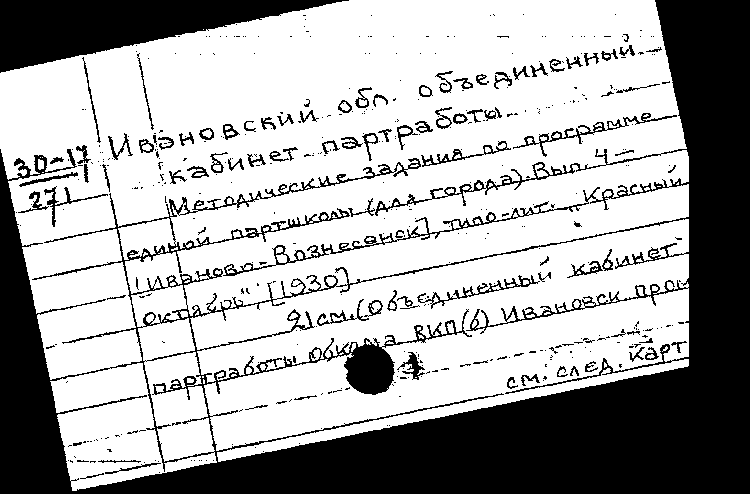 Ивановский обл. объединенный
кабинет партработы.
30-17
271
Методические задания по программе
единой партшколы (для города). Вып. 4 —
[Иваново-Вознесенск], типо-лит. „Красный
Октябрь", [1930].
21 см. (Объединенный кабинет
партработы обкома ВКП(б) Ивановск. пром
см. след. карт